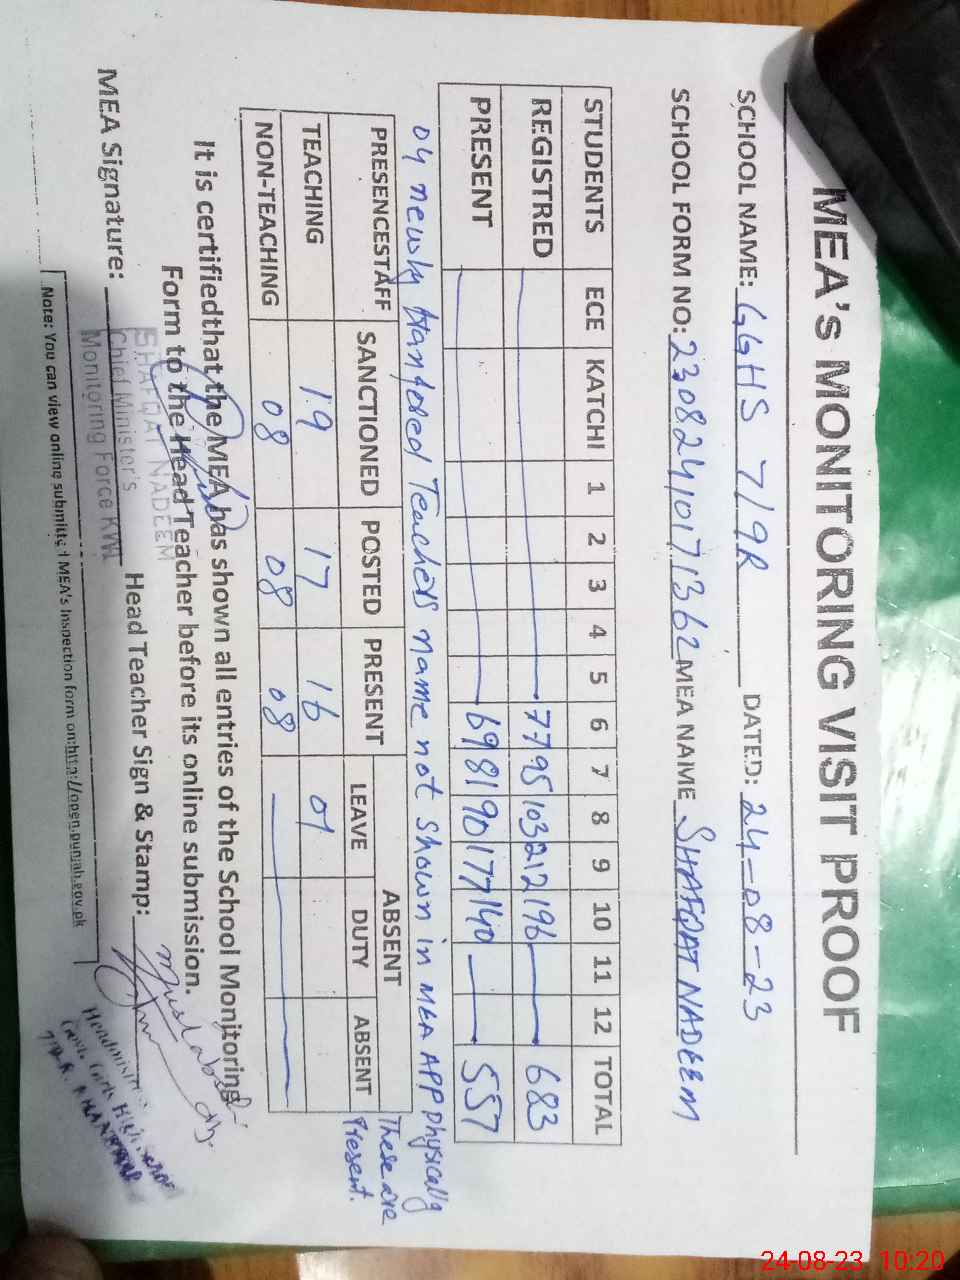 MEA's MONITORING VISIT PROOF
SCHOOL NAME: GGHS 7/9R DATED: 24-08-23
SCHOOL FORM NO: 23082410171362 MEA NAME SHAFQAT NADEEM
STUDENTS ECE KATCHI 1 2 3 4 5 6 7 8 9 10 11 12 TOTAL
REGISTRED 77 95 103 212 196 683
PRESENT 69 81 90 177 140 557
04 newly tranfered Teachers name not shown in MEA APP physically
These are
Present.
PRESENCESTAFF SANCTIONED POSTED PRESENT ABSENT
LEAVE DUTY ABSENT
TEACHING 19 17 16 01
NON-TEACHING 08 08 08
It is certifiedthat the MEA has shown all entries of the School Monitoring
Form to the Head Teacher before its online submission.
MEA Signature: Head Teacher Sign & Stamp:
SHAFQAT NADEEM
Chief Minister's
Monitoring Force KWL
Note: You can view online submitted MEA's Inspection form on:http://open.punjab.gov.pk
24-08-23 10:20